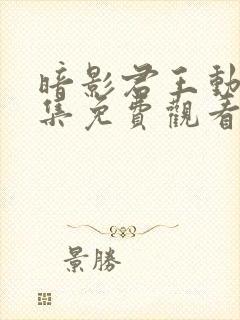 暗影君王動
集免費觀看
景勝